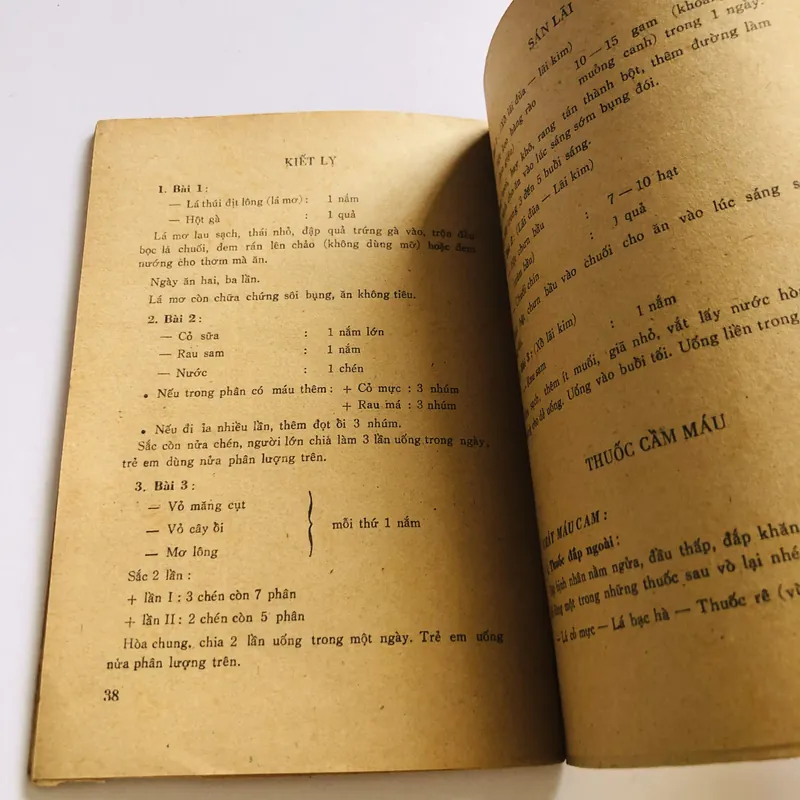 KIẾT LỴ
1. Bài 1 :
— Lá thúi địt lông (lá mơ) : 1 nắm
— Hột gà : 1 quả
Lá mơ lau sạch, thái nhỏ, đập quả trứng gà vào, trộn đều
bọc lá chuối, đem rán lên chảo (không dùng mỡ) hoặc đem
nướng cho thơm mà ăn.
Ngày ăn hai, ba lần.
Lá mơ còn chữa chứng sôi bụng, ăn không tiêu.
2. Bài 2 :
— Cỏ sữa : 1 nắm lớn
— Rau sam : 1 nắm
— Nước : 1 chén
• Nếu trong phân có máu thêm : + Cỏ mực : 3 nhúm
+ Rau má : 3 nhúm
• Nếu đi ỉa nhiều lần, thêm đọt ổi 3 nhúm.
Sắc còn nửa chén, người lớn chia làm 3 lần uống trong ngày,
trẻ em dùng nửa phân lượng trên.
3. Bài 3 :
— Vỏ măng cụt
— Vỏ cây ổi
— Mơ lông
mỗi thứ 1 nắm
Sắc 2 lần :
+ lần I : 3 chén còn 7 phân
+ lần II : 2 chén còn 5 phân
Hòa chung, chia 2 lần uống trong một ngày. Trẻ em uống
nửa phân lượng trên.
38
SÁN LÃI
(Xổ lãi đũa — lãi kim)
10 — 15 gam
muỗng canh) trong 1 ngày.
hay khô, rang tán thành bột, thêm đường làm
vào lúc sáng sớm bụng đói.
3 đến 5 buổi sáng.
(Lãi đũa — Lãi kim)
: 7 — 10 hạt
Chuối chín : 1 quả
vào chuối cho ăn vào lúc sáng
3 : (Xổ lãi kim)
sam : 1 nắm
sạch, thêm ít muối, giã nhỏ, vắt lấy nước
cho dễ uống. Uống vào buổi tối. Uống liền trong
THUỐC CẦM MÁU
MÁU CAM :
Thuốc đắp ngoài :
bệnh nhân nằm ngửa, đầu thấp, đắp khăn
dùng một trong những thuốc sau vò lại
— Lá cỏ mực — Lá bạc hà — Thuốc rê